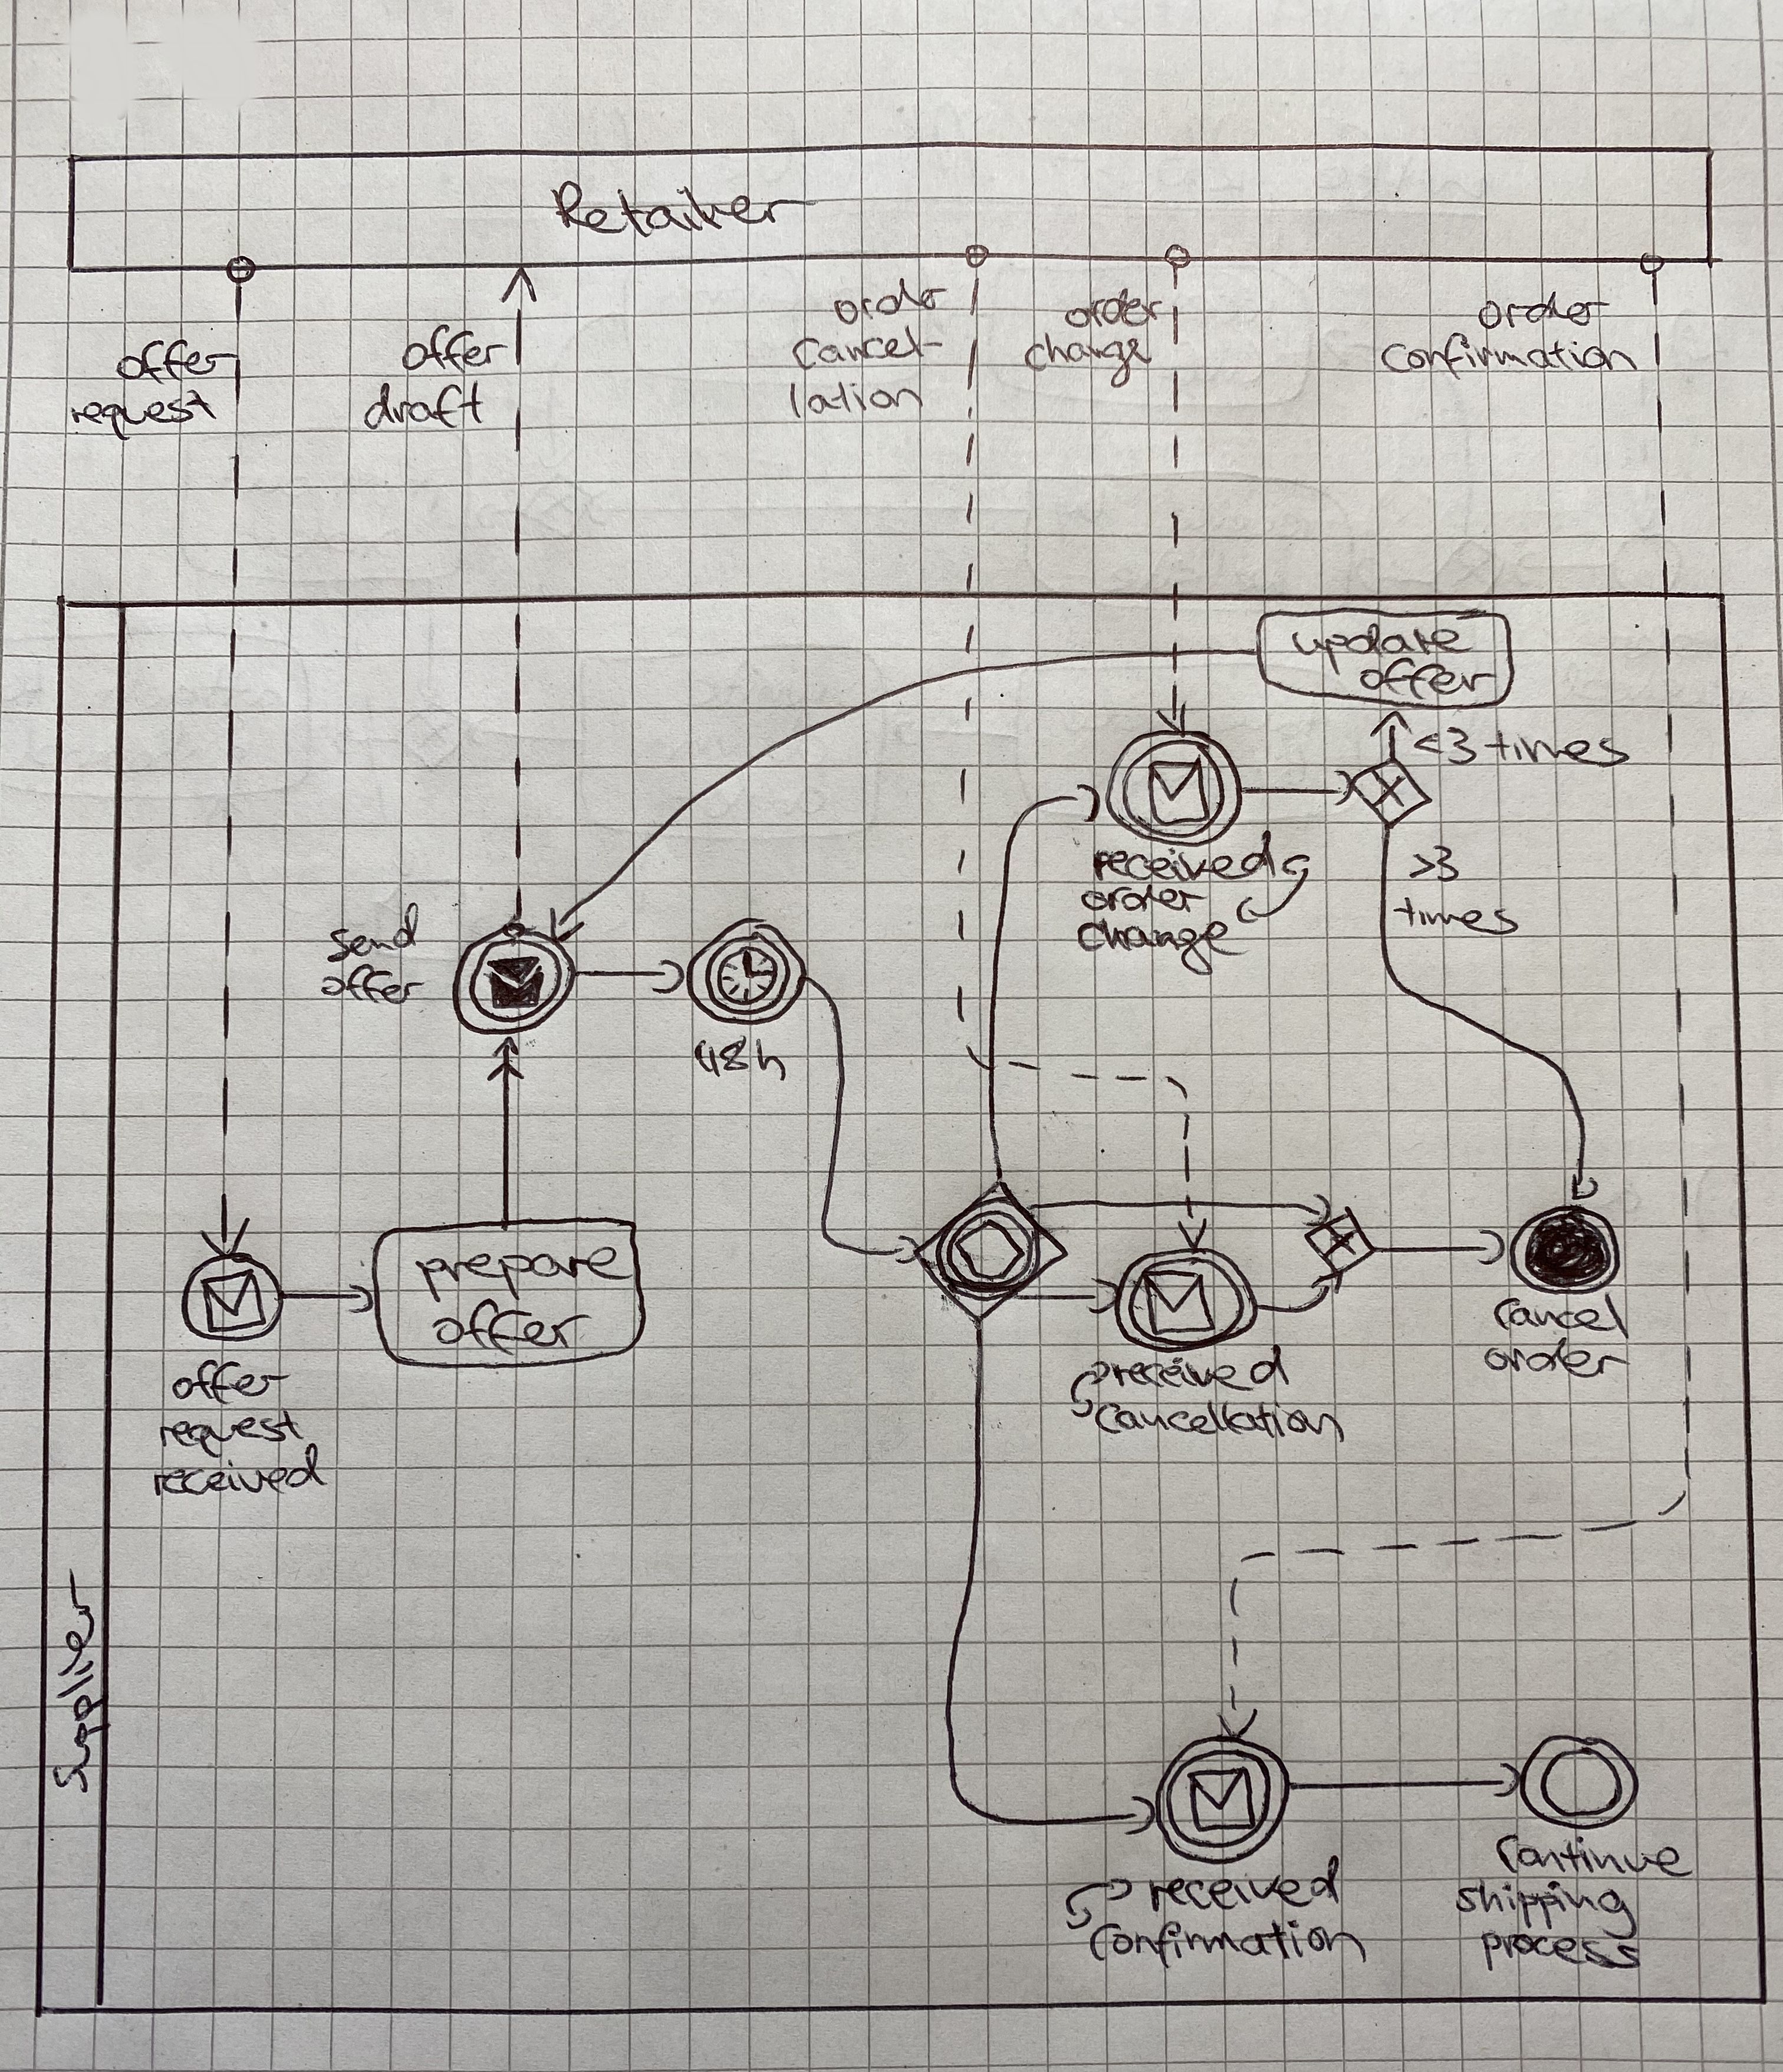 Retailer
offer
request
offer
draft
order
cancel-
lation
order
change
order
confirmation
update
offer
<3 times
received
order
change
>3
times
send
offer
48h
prepare
offer
offer
request
received
received
cancellation
cancel
order
Supplier
received
confirmation
continue
shipping
process